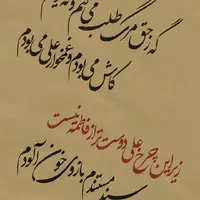 گه ز حق مرگ طلب می‌کنم و
کاش می بودم و غمخوار علی می بودم
زیر این چرخ علی دوست تر از فاطمه نیست
سند مستندم بازوی خون آلودم